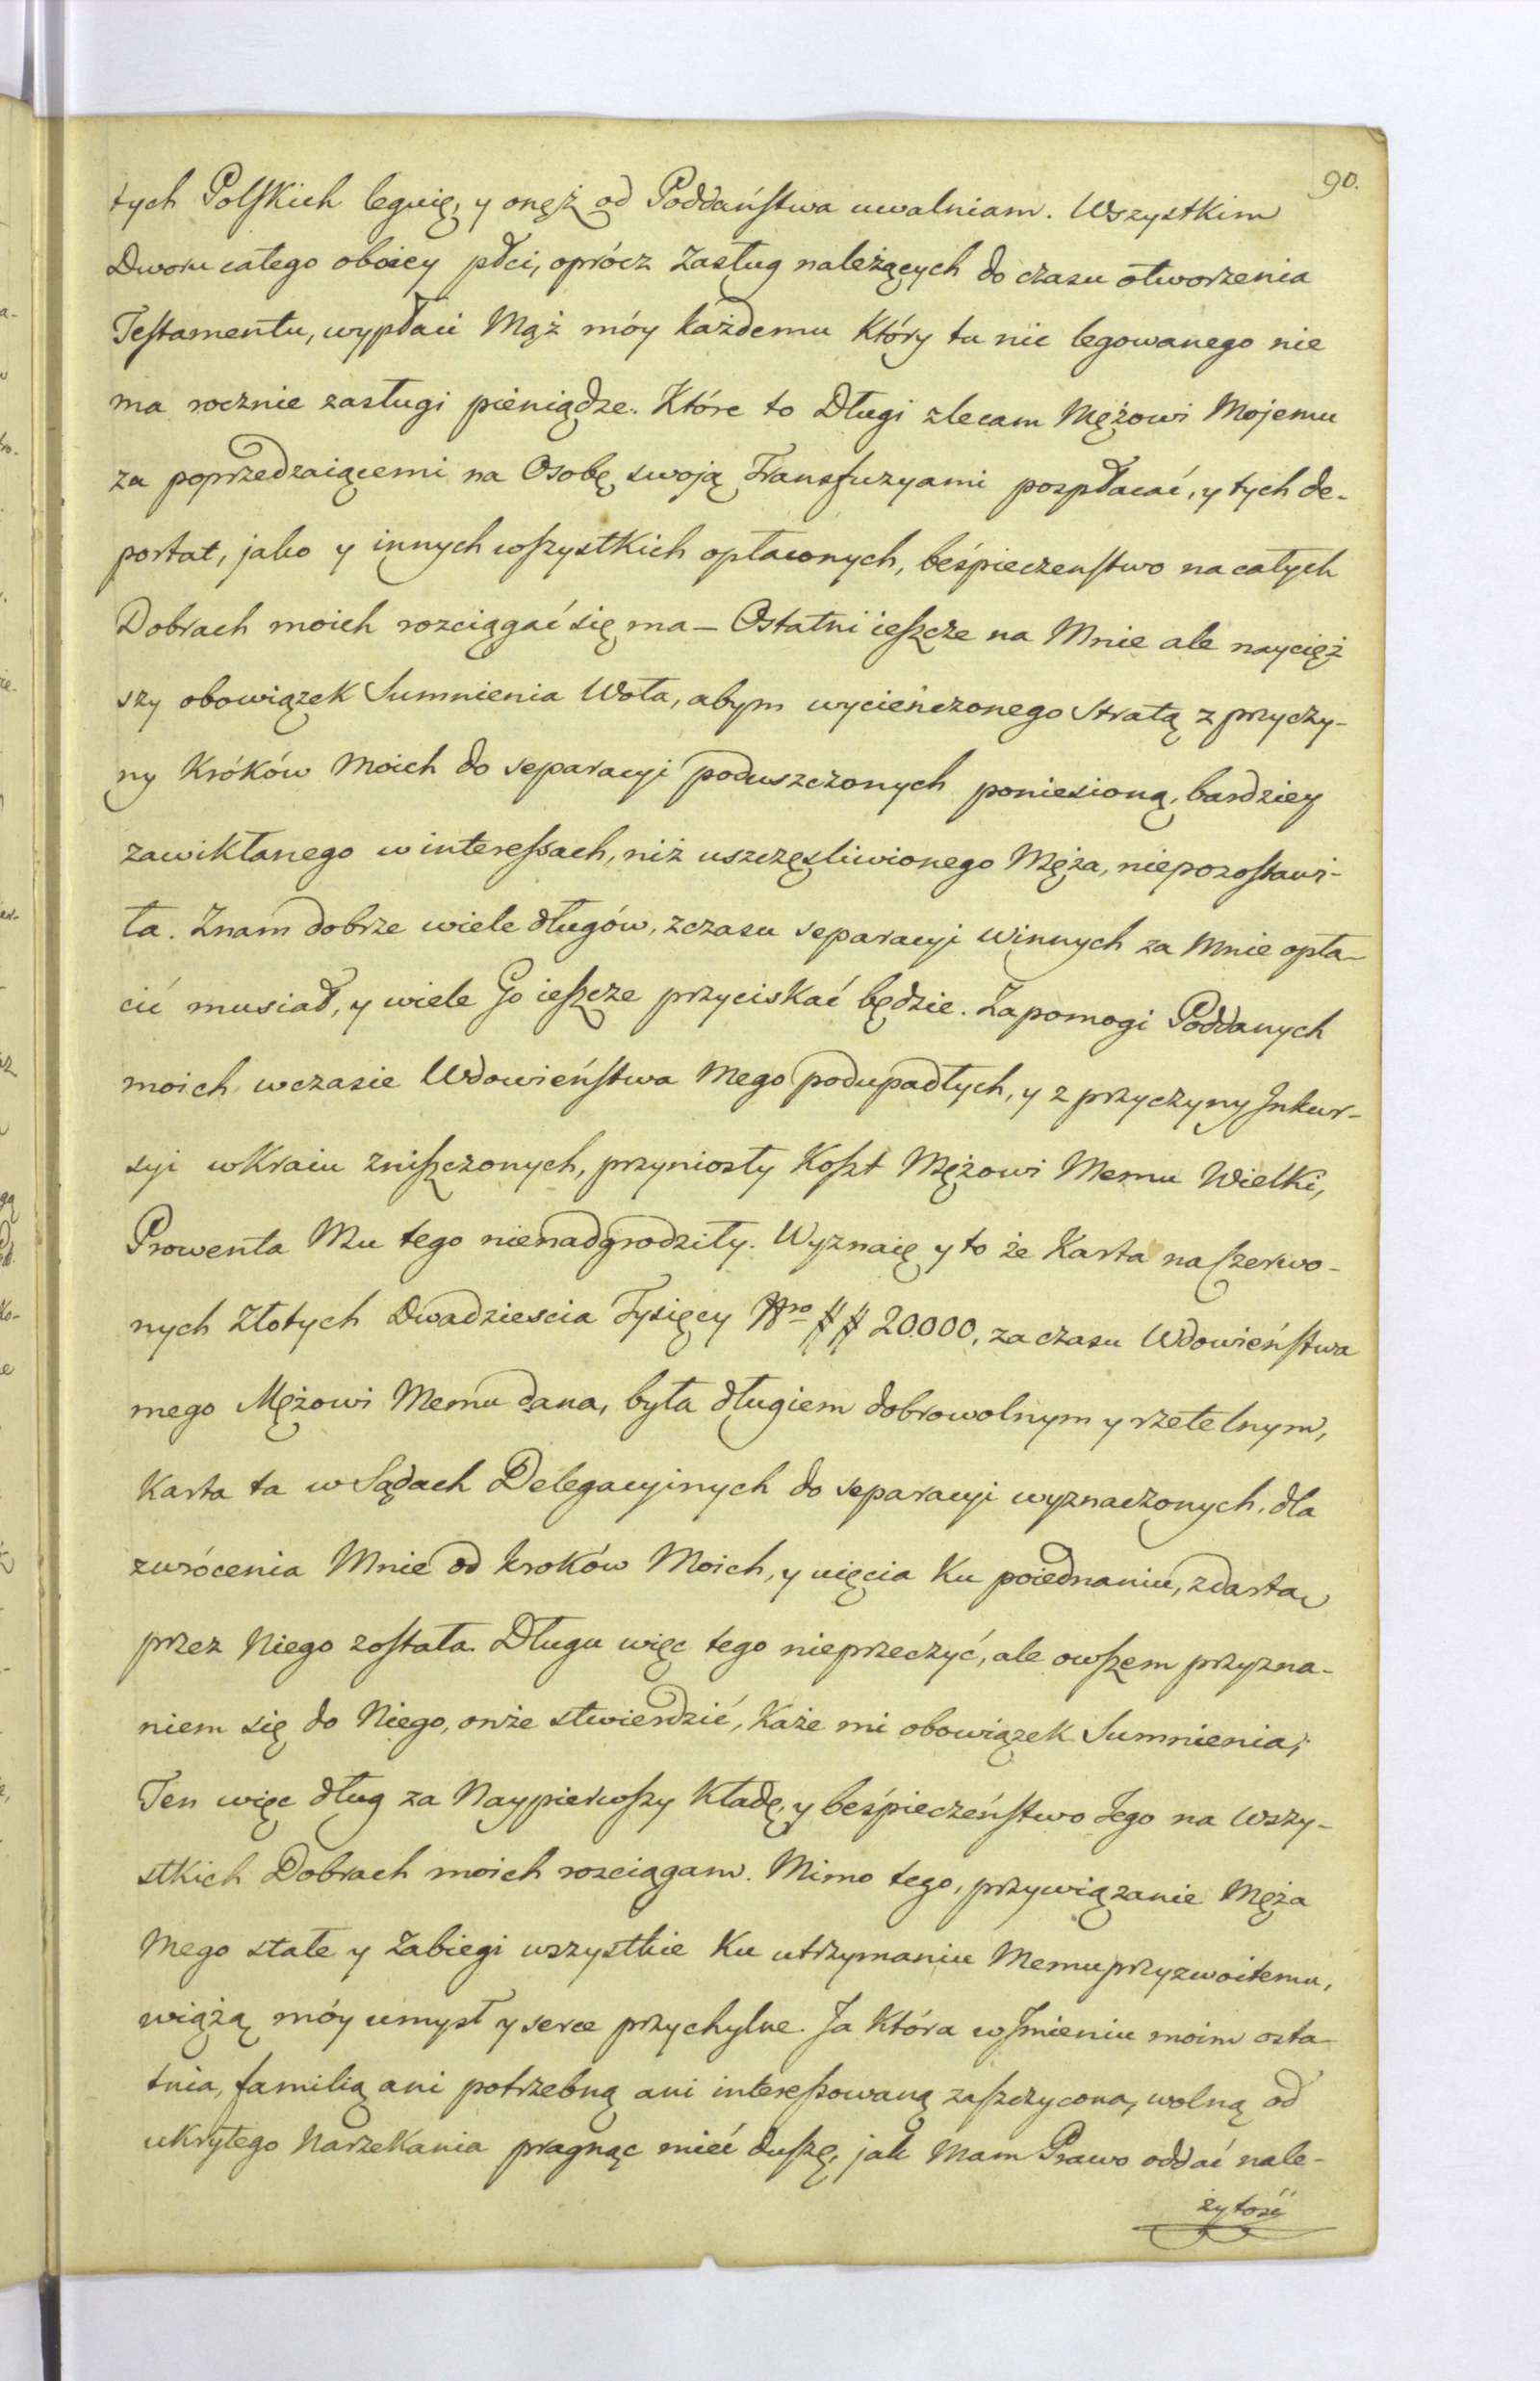 90.
tych Polskich leguię, y onęż od Poddaństwa uwalniam. Wszystkim
Dworu całego oboiey płci, oprócz Zasług należących do czasu otworzenia
Testamentu, wypłaci Mąż móy każdemu Który tu nic legowanego nie
ma rocznie zasługi pieniądze. Które to Długi zlecam Mężowi Mojemu
za poprzedzaiącemi na Osobę swoją Transfuzyami pozpłacać, y tych de-
portat, jako y innych wszystkich opłaconych, beśpieczenstwo na całych
Dobrach moich rozciągać się ma – Ostatni ieszcze na Mnie ale naycięż
szy obowiązek Sumnienia Woła, abym wycieńczonego Stratą z przyczy-
ny Króków Moich do separacyi poduszczonych poniesioną, bardziey
zawikłanego w interessach, niż uszczęsliwionego Męża, niepozostawi-
ła. Znam dobrze wiele długów, z czasu separacyi winnych za Mnie opła-
cić musiał, y wiele Go ieszcze przyciskać będzie. Zapomogi Poddanych
moich wczasie Wdowieństwa Mego podupadłych, y z przyczyny Inkur-
syi w Kraiu zniszczonych, przyniosły Koszt Mężowi Memu Wielki,
Prowenta Mu tego nienadgrodziły. Wyznaię y to że Karta na Czerwo-
nych Złotych Dwadziescia Tysięcy Nro ## 20.000, za czasu Wdowieństwa
mego Mężowi Memu dana, była długiem dobrowolnym y rzetelnym,
Karta ta w Sądach Delegacyinych do separacyi wyznaczonych, dla
zwrócenia Mnie od kroków Moich, y uięcia Ku poiednaniu, zdarta
przez Niego została. Długu więc tego nieprzeczyć, ale owszem przyzna-
niem się do Niego, onże stwierdzić, Każe mi obowiązek Sumnienia;
Ten więc dług za Naypierwszy Kładę, y beśpieczeństwo Jego na Wszy-
stkich Dobrach moich rozciągam. Mimo tego, przywiązanie Męża
Mego stałe y Zabiegi wszystkie Ku utrzymaniu Memu przyzwoitemu,
wiążą móy umysł y serce przychylne. Ja Która w Imieniu moim osta
tnia, familią ani potrzebną ani interessowaną zaszczycona, wolną od
ukrytego Narzekania pragnąc mieć duszę, jak Mam Prawo oddać nale-
żytość